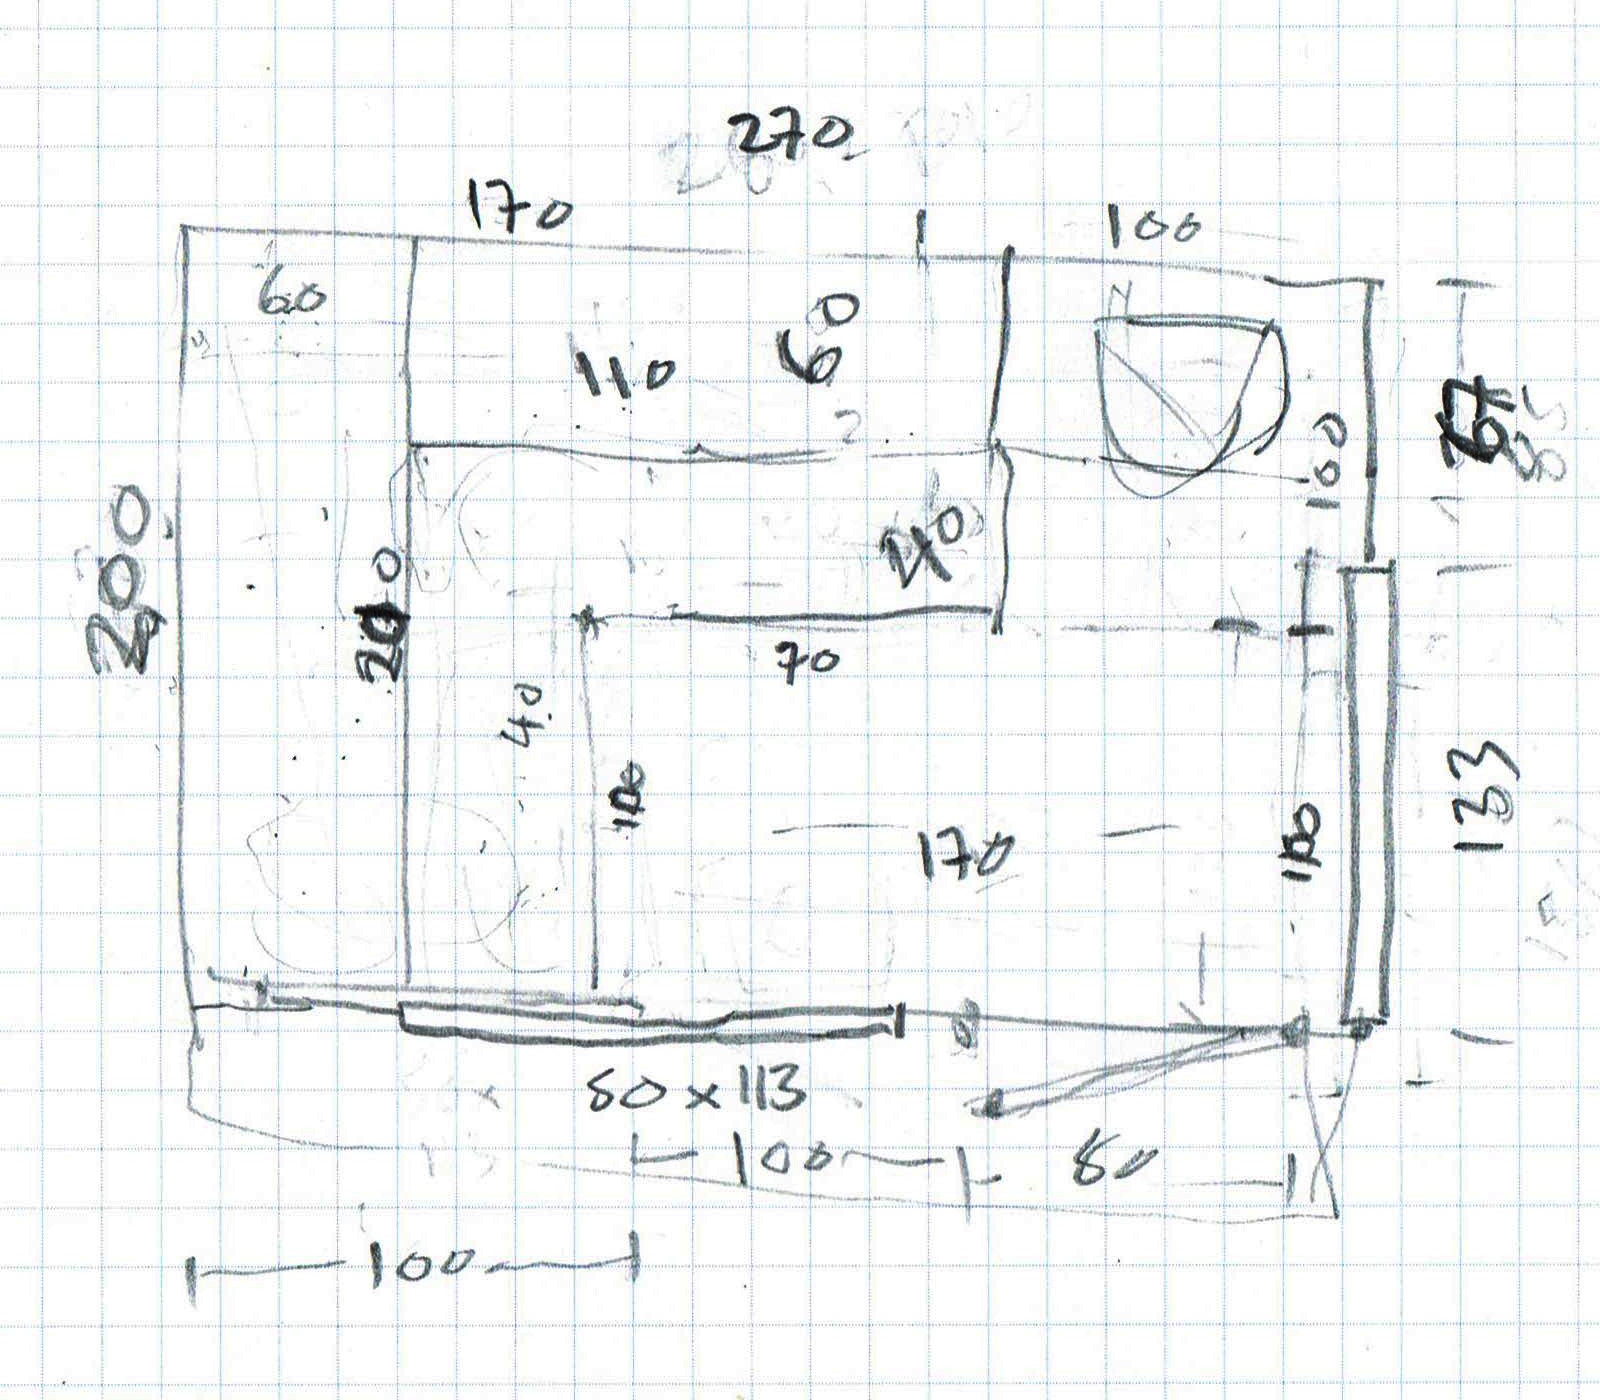 270
170
100
60
110
60
100
67
200
200
40
70
40
100
170
100
133
80 x 113
100
80
100